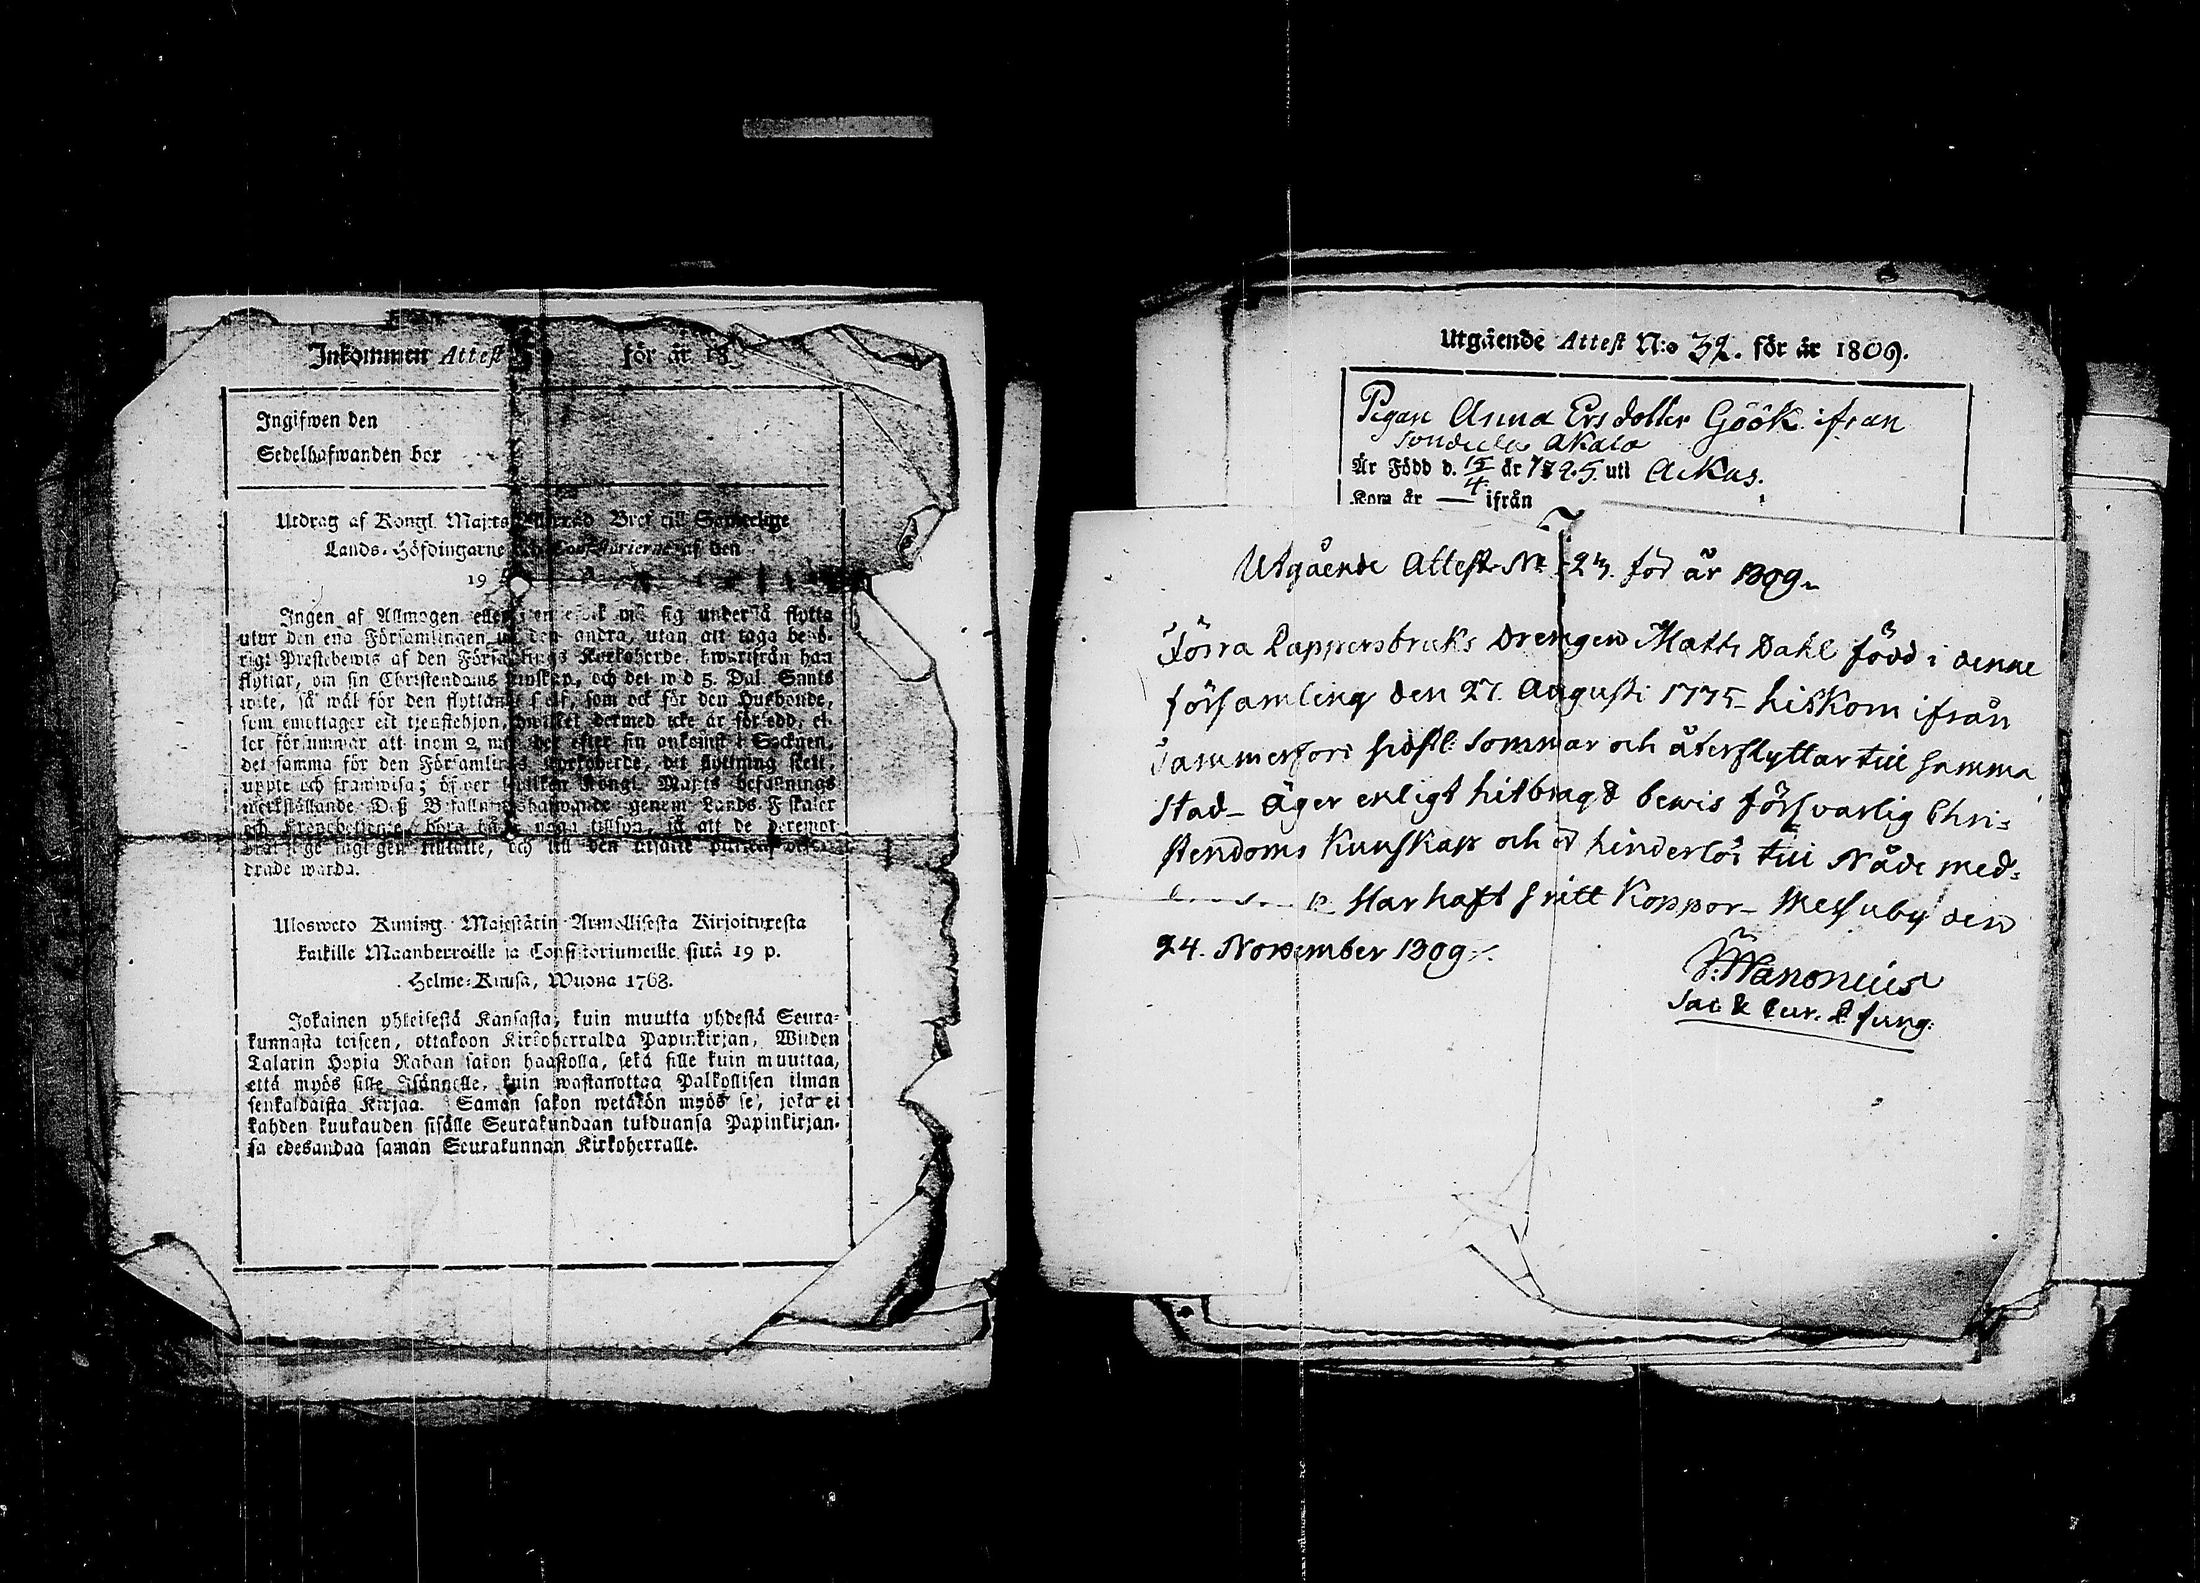 Inkommen Attest för år 18
Ingifwen den
Sedelhafwanden bor
Utdrag af Kongl. Maj:ts Bref till Samtelige
Lands-Höfdingarne och Consistorierne af den
19
Ingen af Allmogen eller må sig understå flytta
utur den ena Församlingen til den andra, utan att taga behö-
rigt Prestebewis af den Församlings Kyrkoherde, hwarifrån han
flyttar, om sin Christendoms kunskap, och det wid 5. Dal. Smts
wite, så wäl för den flyttande self, som ock för den Husbonde,
som emottager ett tjenstehjon, hwilket dermed icke är försedd, el-
ler försummar att inom 2 månader efter sin ankomst i Socknen,
det samma för den Församlings Kyrkoherde, dit flyttning skett,
uppte och framwisa; öfwer hwilken Kongl. Maj:ts befallnings
werkställande Deß Befallningshafwande genom Lands-Fiskaler
och Kronobetjente böra hafwa noga tillsyn, så att de deremot
till den utsatte
drade warda.
Ulosweto Kuning. Majestätin Armollisesta Kirjoituxesta
kaikille Maanherroille ja Consistoriumeille siitä 19 p.
Helme-Kuusa, Wuona 1768.
Jokainen yhteisestä Kansasta, kuin muutta yhdestä Seura-
kunnasta toiseen, ottakoon Kirkoherralda Papinkirjan, Wiiden
Talarin Hopia Rahan sakon haastolla, sekä sille kuin muuttaa,
että myös sille Isännelle, kuin wastanottaa Palkollisen ilman
senkaldaista Kirjaa. Saman sakon wetäkön myös se, joka ei
kahden kuukauden sisälle Seurakundaan tulduansa Papinkirjan-
sa edesandaa saman Seurakunnan Kirkoherralle.
Utgående Attest N:o 32. för år 1809.
Pigan Anna Ersdotter Göök ifran
Akala
Är Född d. 15/4 år 1795. uti Ackas.
Kom år — ifrån
Utgående Attest No 23. för år 1809.
Förra Pappersbruks Drengen Matts Dahl född i denne
församling den 27. Augusti 1775 hitkom ifrån
Tammerfors sistl. Sommar och återflyttar till samma
stad – Äger enligt hitbragd bewis försvarlig Chri-
stendoms Kunskap och är hinderlös till Nåde med-
Har haft fritt Koppor – Messuby den
24. November 1809.
Wanonius
Sac &